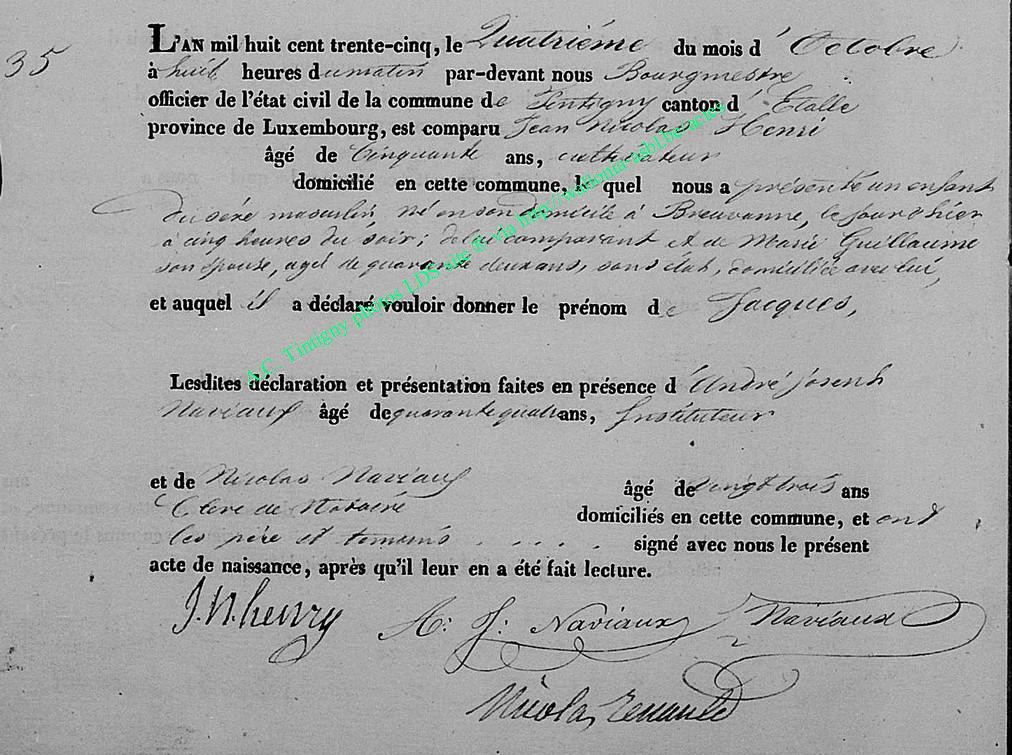 35
L'AN mil huit cent trente-cinq, le Quatriéme du mois d'Octobre
à huit heures du matin par-devant nous Bourgmestre
officier de l'état civil de la commune de Tintigny canton d'Etalle
province de Luxembourg, est comparu Jean Nicolas Henri
âgé de Cinquante ans, cultivateur
domicilié en cette commune, le quel nous a présenté un enfant
du séxe masculin, né en son domicile à Breuvanne, le jour d'hier
à cinq heures du soir; de lui comparant et de Marie Guillaume
son épouse, agée de quarante deux ans, sans état, domiciliée avec lui,
et auquel il a déclaré vouloir donner le prénom de Jacques,
Lesdites déclaration et présentation faites en présence d'André joseph
Naviaux âgé de quarante quatre ans, Instituteur
et de Nicolas Naviaux âgé de vingt trois ans
Clerc de Notaire domiciliés en cette commune, et ont
les père et temoins signé avec nous le présent
acte de naissance, après qu'il leur en a été fait lecture.
J. N. henry A: J: Naviaux Naviaux
Nicolas
A.C. Tintigny photos LDS site @ via http://wallonia-asbl.be/actes